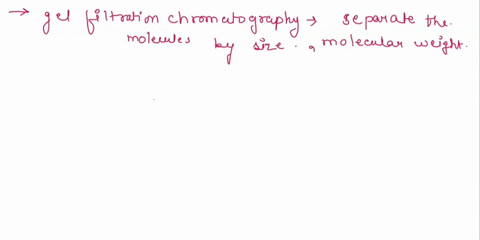 → gel filtration chromatography → separate the
molecules by size . , molecular weight.